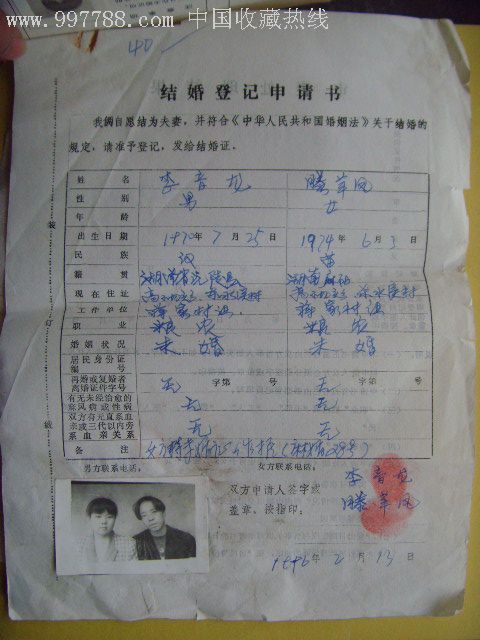 www.997788.com 中国收藏热线
40
结婚登记申请书
我俩自愿结为夫妻，并符合《中华人民共和国婚姻法》关于结婚的
规定，请准予登记，发给结婚证。
姓名 李音龙 滕苹凤
性别 男 女
年龄
出生日期 1970年7月25日 1974年6月3日
民族 汉 苗
籍贯 湖南省沅陵县 湖南麻阳
现在住址
工作单位 蒋家村 蒋家村
职业 粮农 粮农
婚姻状况 未婚 未婚
居民身份证
编号
再婚或复婚者
离婚证件字号 无 字第 号 无 字第 号
有无未经治愈的
麻风病或性病 无 无
双方有无直系血
亲或三代以内旁
系血亲关系 无 无
备注 女方
男方联系电话： 女方联系电话：
双方申请人签字或
盖章、按指印： 李音龙
滕苹凤
1996年2月13日
装
订
线